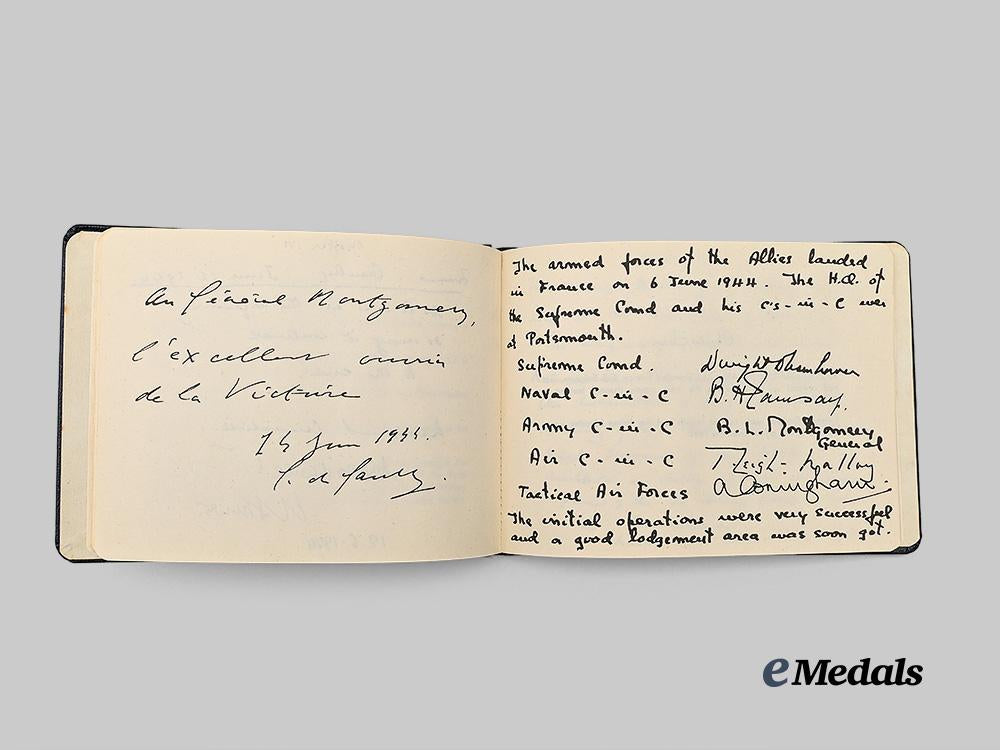 au Général Montgomery,
l'excellent ouvrier
de la Victoire
14 Juin 1944.
C. de Gaulle.
The armed forces of the Allies landed
in France on 6 June 1944. The H.Q. of
the Supreme Comd and his C's-in-C were
at Portsmouth.
Supreme Comd. Dwight D Eisenhower
Naval C-in-C B. H. Ramsay.
Army C-in-C B. L. Montgomery
General
Air C-in-C T Leigh-Mallory
Tactical Air Forces A Coningham.
The initial operations were very successful
and a good lodgement area was soon got.
eMedals